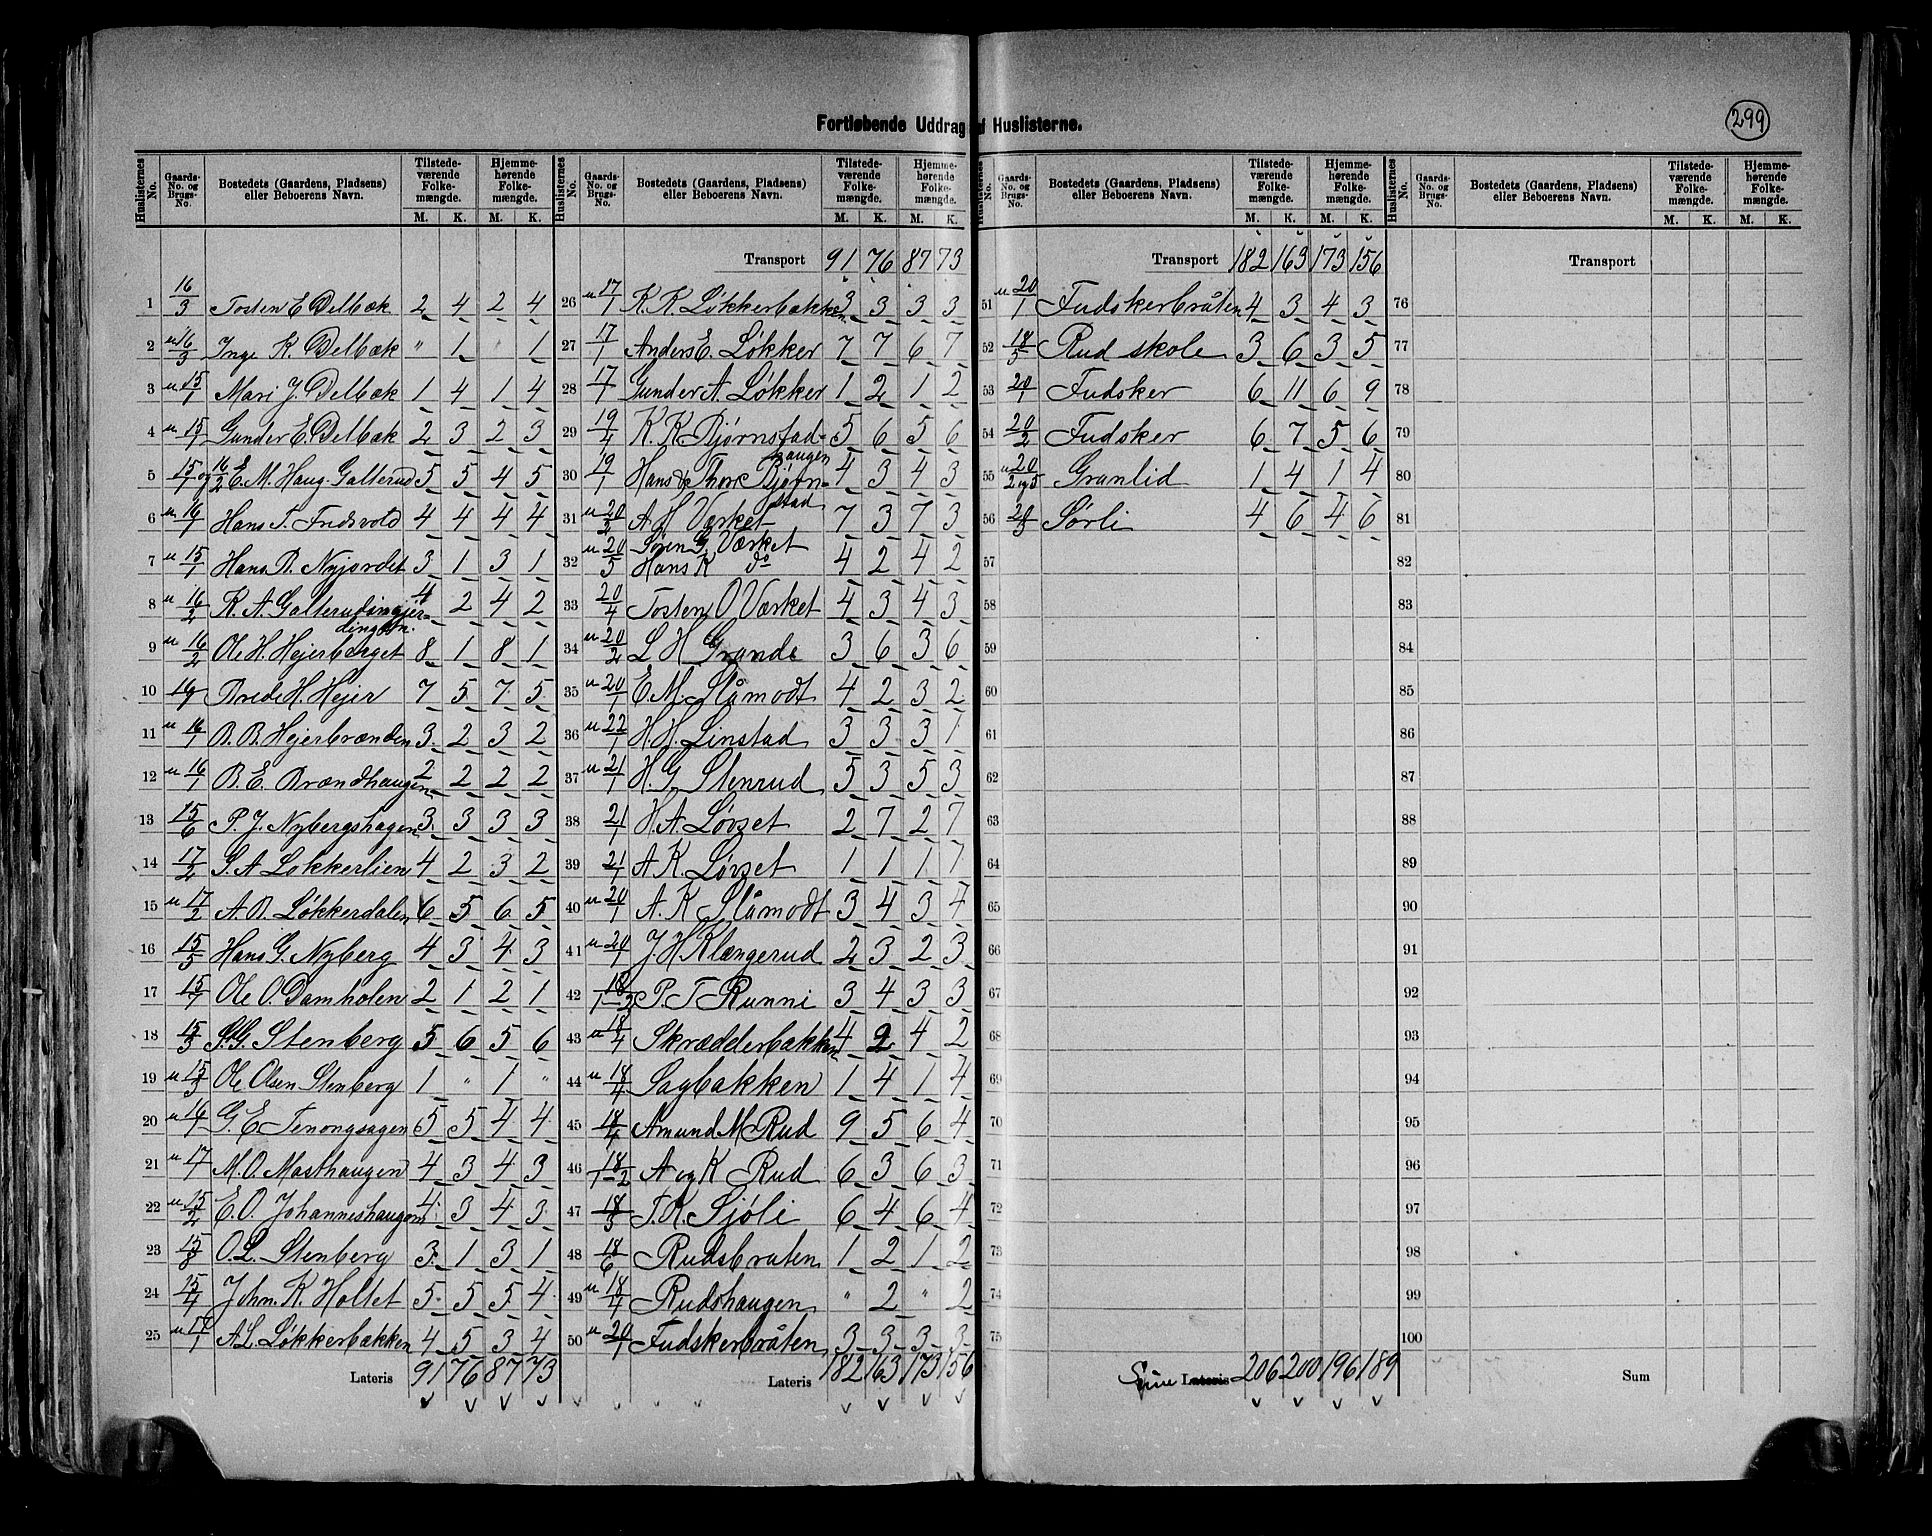 Fortløbende Uddrag af Huslisterne.
299
Huslisternes No. | Gaards-No. og Brugs-No. | Bostedets (Gaardens, Pladsens) eller Beboerens Navn. | Tilstedeværende Folkemængde. M. K. | Hjemmehørende Folkemængde. M. K.
1 16/3 Tosten E Delbæk 2 4 2 4
2 u 16/3 Inge K. Delbæk " 1 1
3 u 15/1 Mari J. Delbæk 1 4 1 4
4 u 15/7 Gunder E. Delbæk 2 3 2 3
5 15/7 og 16/2 E. M. Haug-Galterud 5 5 4 5
6 u 16/1 Hans T. 4 4 4 4
7 u 15/1 Hans B. Nyjordet 3 1 3 1
8 u 16/2 K. A. Galterudingjerdingen. 4 2 4 2
9 u 16/2 Ole H. Hejerberget 8 1 8 1
10 Brede H. Hejer 7 5 7 5
11 u 16/1 B. B. Hejerbrænden 3 2 3 2
12 u 16/1 B. E. Brændhaugen 2 2 2 2
13 15/6 P. J. Nybergshagen 3 3 3 3
14 17/2 G. A Løkkerlien 4 2 3 2
15 u 17/2 A. B. Løkkerdalen 6 5 6 5
16 15/5 Hans G. Nyberg 4 3 4 3
17 15/7 Ole O. Damholen 2 1 2 1
18 15/3 G. G. Stenberg 5 6 5 6
19 u 15/3 Ole Olsen Stenberg 1 " 1 "
20 u 16/1 G. E 5 5 4 4
21 u 17/1 M. O. Masthaugen 4 3 4 3
22 u 15/2 E. O. Johanneshaugen 4 3 4 3
23 15/8 O. L. Stenberg 3 1 3 1
24 15/4 John. K. Holtet 5 5 5 4
25 u 17/1 A. L. Løkkerbækken 4 5 3 4
Lateris 91 76 87 73
Huslisternes No. | Gaards-No. og Brugs-No. | Bostedets (Gaardens, Pladsens) eller Beboerens Navn. | Tilstedeværende Folkemængde. M. K. | Hjemmehørende Folkemængde. M. K.
Transport 91 76 87 73
26 u 17/1 K. K. Løkkerbækken 3 3 3 3
27 17/1 Anders E. Løkker 7 7 6 7
28 17/1 Gunder A. Løkker 1 2 1 2
29 19/4 K. K Bjørnstadhaugen 5 6 5 6
30 19/1 Hans & Thor Bjørnstad 4 3 4 3
31 u 20/3 A H Værket 7 3 7 3
32 u 20/5 Søren G. Værket Hans K do 4 2 4 2
33 20/4 Tosten O Værket 4 3 4 3
34 u 20/2 L H Grande 3 6 3 6
35 u 20/1 E. M. Slåmodt 4 2 3 2
36 u 22/1 H. H. Linstad 3 3 3 1
37 u 21/1 H. G Stenrud 5 3 5 3
38 21/1 H. A. Løvset 2 7 2 7
39 21/1 A K. Løvset 1 1 1 1
40 u 20/1 A. K Slåmodt 3 4 3 4
41 u 20/1 J. H Klængerud 2 3 2 3
42 18/1-2 P. T Runni 3 4 3 3
43 u 18/4 Skrædderbakken 4 2 4 2
44 u 18/4 Sagbakken 1 4 1 4
45 18/4 Amund M Rud 9 5 6 4
46 18/1-2 A og K Rud 6 3 6 3
47 18/3 T. K. Sjøli 6 4 6 4
48 18/6 Rudsbraten 1 2 1 2
49 u 18/4 Rudshaugen " 2 " 2
50 u 20/1 Fudskerbråten 3 3 3 3
Lateris 182 163 173 156
Huslisternes No. | Gaards-No. og Brugs-No. | Bostedets (Gaardens, Pladsens) eller Beboerens Navn. | Tilstedeværende Folkemængde. M. K. | Hjemmehørende Folkemængde. M. K.
Transport 182 163 173 156
51 u 20/1 Fudskerbråten 4 3 4 3
52 18/5 Rud skole 3 6 3 5
53 20/1 Fudsker 6 11 6 9
54 20/2 Fudsker 6 7 5 6
55 u 20/2 og 5 Granlid 1 4 1 4
56 20/3 Sørli 4 6 4 6
57
58
59
60
61
62
63
64
65
66
67
68
69
70
71
72
73
74
75
Sum Lateris 206 200 196 189
Huslisternes No. | Gaards-No. og Brugs-No. | Bostedets (Gaardens, Pladsens) eller Beboerens Navn. | Tilstedeværende Folkemængde. M. K. | Hjemmehørende Folkemængde. M. K.
Transport
76
77
78
79
80
81
82
83
84
85
86
87
88
89
90
91
92
93
94
95
96
97
98
99
100
Sum